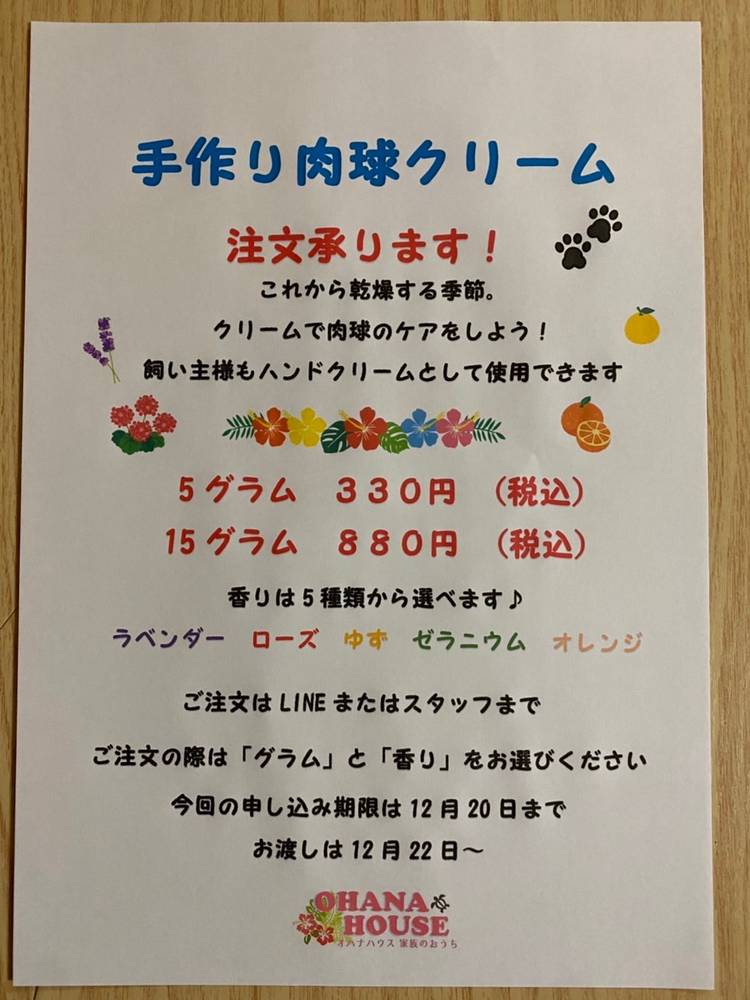 手作り肉球クリーム
注文承ります！
これから乾燥する季節。
クリームで肉球のケアをしよう！
飼い主様もハンドクリームとして使用できます
5グラム　３３０円　（税込）
15グラム　８８０円　（税込）
香りは5種類から選べます♪
ラベンダー　ローズ　ゆず　ゼラニウム　オレンジ
ご注文はLINEまたはスタッフまで
ご注文の際は「グラム」と「香り」をお選びください
今回の申し込み期限は12月20日まで
お渡しは12月22日～
OHANA
HOUSE
オハナハウス 家族のおうち